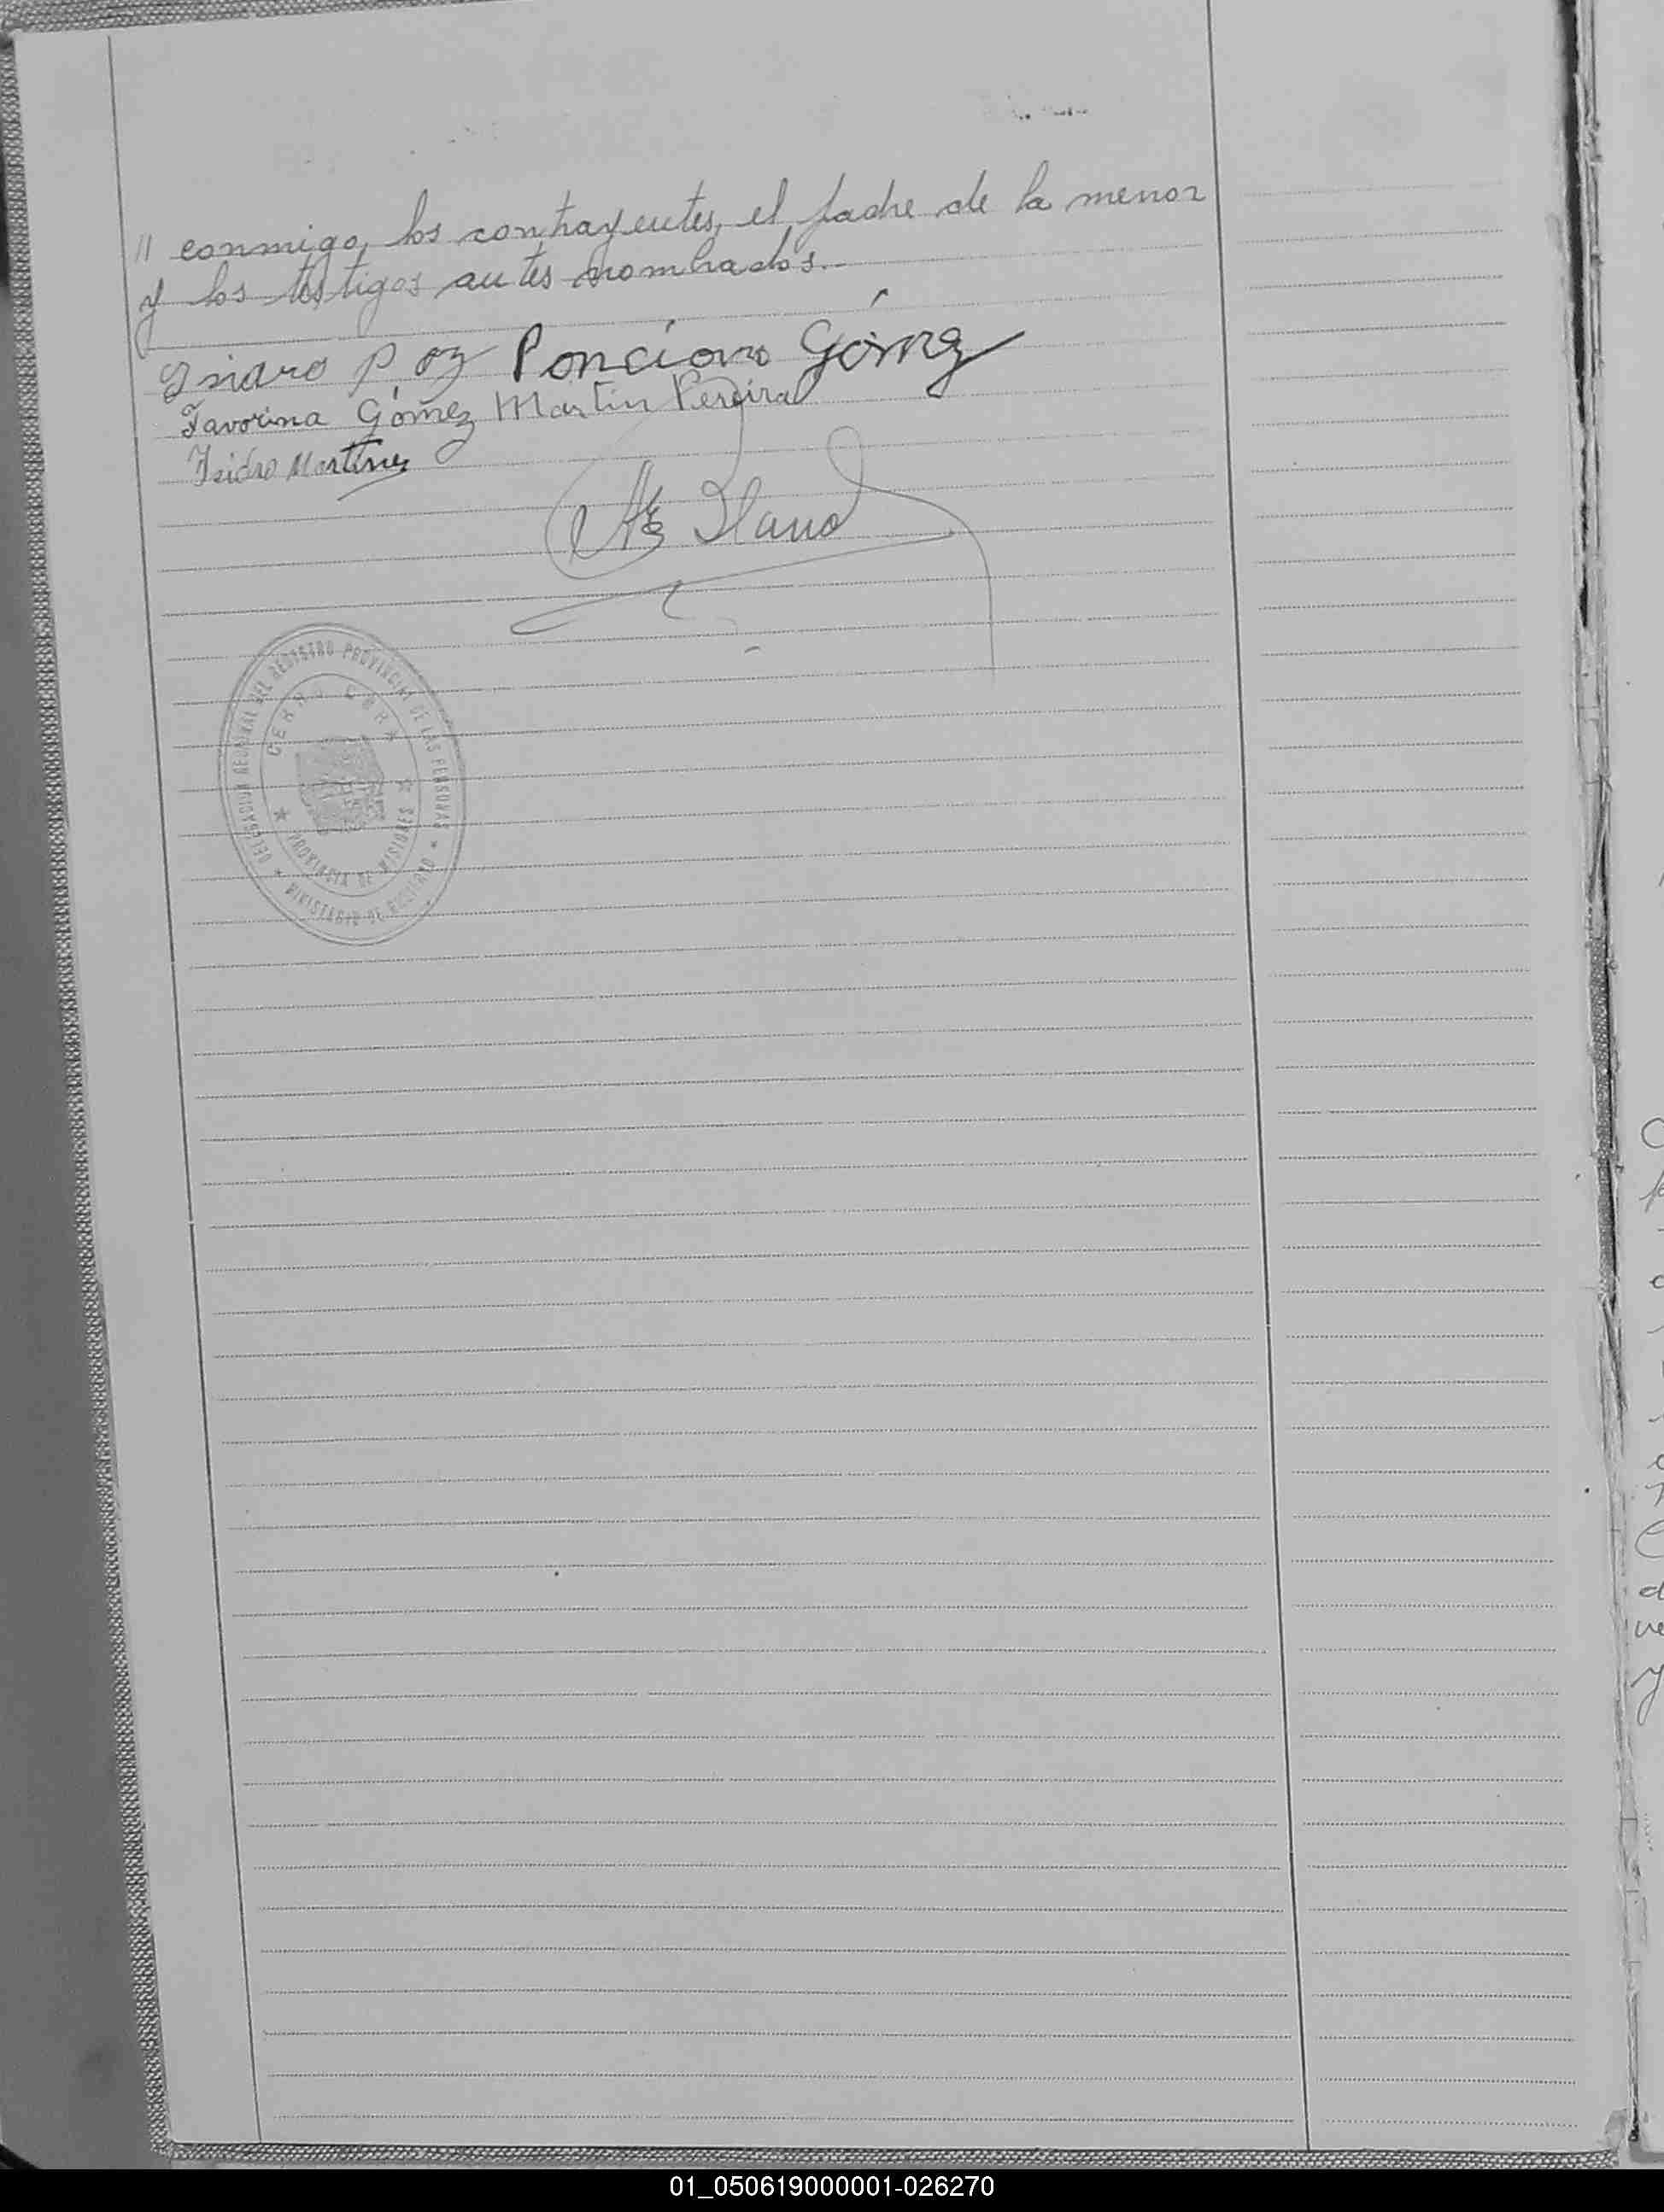 // conmigo, los contrayentes, el padre de la menor
y los testigos antes nombrados.-
Ponciano Gómez
Favorina Gómez Martin Pereira
Isidro Martinez
DELEGACION REGIONAL DEL REGISTRO PROVINCIAL DE LAS PERSONAS
CERRO CORA
PROVINCIA DE MISIONES
MINISTERIO DE GOBIERNO
01_050619000001-026270